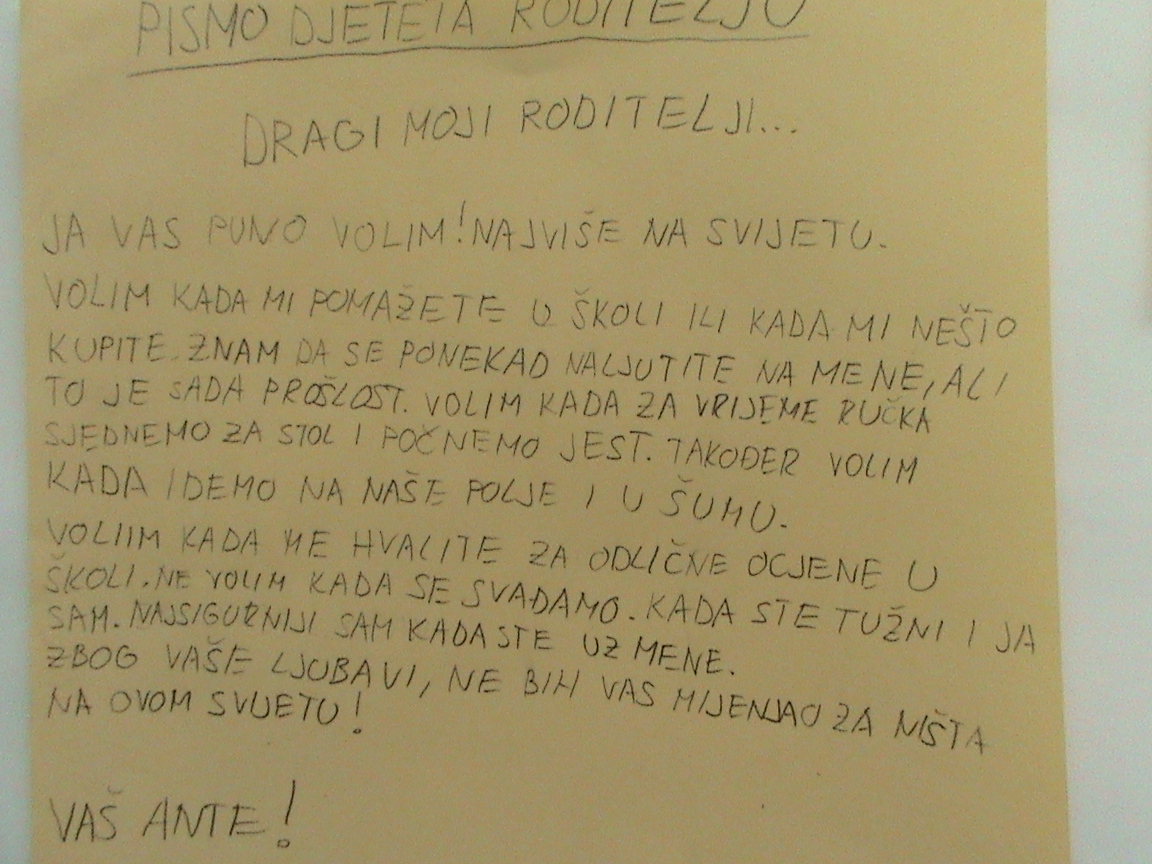 PISMO DJETETA RODITELJU
DRAGI MOJI RODITELJI...
JA VAS PUNO VOLIM! NAJVIŠE NA SVIJETU.
VOLIM KADA MI POMAŽETE U ŠKOLI ILI KADA MI NEŠTO
KUPITE. ZNAM DA SE PONEKAD NALJUTITE NA MENE, ALI
TO JE SADA PROŠLOST. VOLIM KADA ZA VRIJEME RUČKA
SJEDNEMO ZA STOL I POČNEMO JEST. TAKOĐER VOLIM
KADA IDEMO NA NAŠE POLJE I U ŠUMU.
VOLIIM KADA ME HVALITE ZA ODLIČNE OCJENE U
ŠKOLI. NE VOLIM KADA SE SVAĐAMO. KADA STE TUŽNI I JA
SAM. NAJSIGURNIJI SAM KADA STE UZ MENE.
ZBOG VAŠE LJUBAVI, NE BIH VAS MIJENJAO ZA NIŠTA
NA OVOM SVIJETU!
VAŠ ANTE!